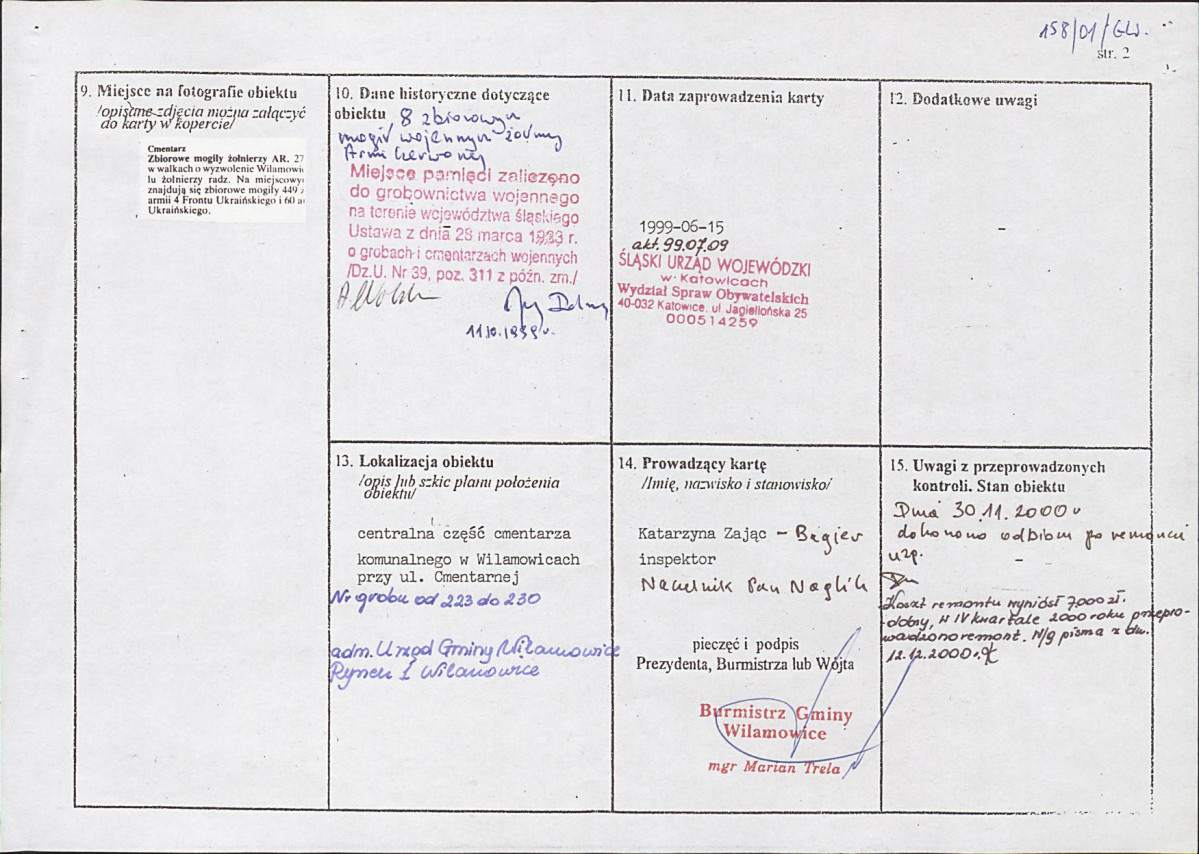 158/01/GW.
str. 2
9. Miejsce na fotografie obiektu
/opisane zdjęcia można załączyć
do karty w kopercie/
Cmentarz
Zbiorowe mogiły żołnierzy AR. 27
w walkach o wyzwolenie Wilamowi
lu żołnierzy radz. Na miejscowy
znajdują się zbiorowe mogiły 449
armii 4 Frontu Ukraińskiego i 60 a
Ukraińskiego.
10. Dane historyczne dotyczące
obiektu 8 zbiorowych
mogił wojennych żołnierzy
Armii Czerwonej
Miejsce pamięci zaliczono
do grobownictwa wojennego
na terenie województwa śląskiego
Ustawa z dnia 28 marca 1933 r.
o grobach i cmentarzach wojennych
/Dz.U. Nr 39, poz. 311 z późn. zm./
11.10.1999 r.
11. Data zaprowadzenia karty
1999-06-15
akt. 99.07.09
ŚLĄSKI URZĄD WOJEWÓDZKI
w Katowicach
Wydział Spraw Obywatelskich
40-032 Katowice, ul Jagiellońska 25
000514259
12. Dodatkowe uwagi
-
13. Lokalizacja obiektu
/opis lub szkic planu położenia
obiektu/
centralna część cmentarza
komunalnego w Wilamowicach
przy ul. Cmentarnej
Nr grobu od 223 do 230
adm. Urząd Gminy Wilamowice
Rynek 1 Wilamowice
14. Prowadzący kartę
/Imię, nazwisko i stanowisko/
Katarzyna Zając - Bagier
inspektor
Naczelnik Pan Naglik
pieczęć i podpis
Prezydenta, Burmistrza lub Wójta
Burmistrz Gminy
Wilamowice
mgr Marian Trela
15. Uwagi z przeprowadzonych
kontroli. Stan obiektu
Dnia 30.11.2000 r
dokonano odbioru po remoncie
-
Koszt remontu wyniósł 7.000 zł.
dobry, W IV kwartale 2000 roku przepro-
wadzono remont. W/g pisma z dn.
12.12.2000 r.